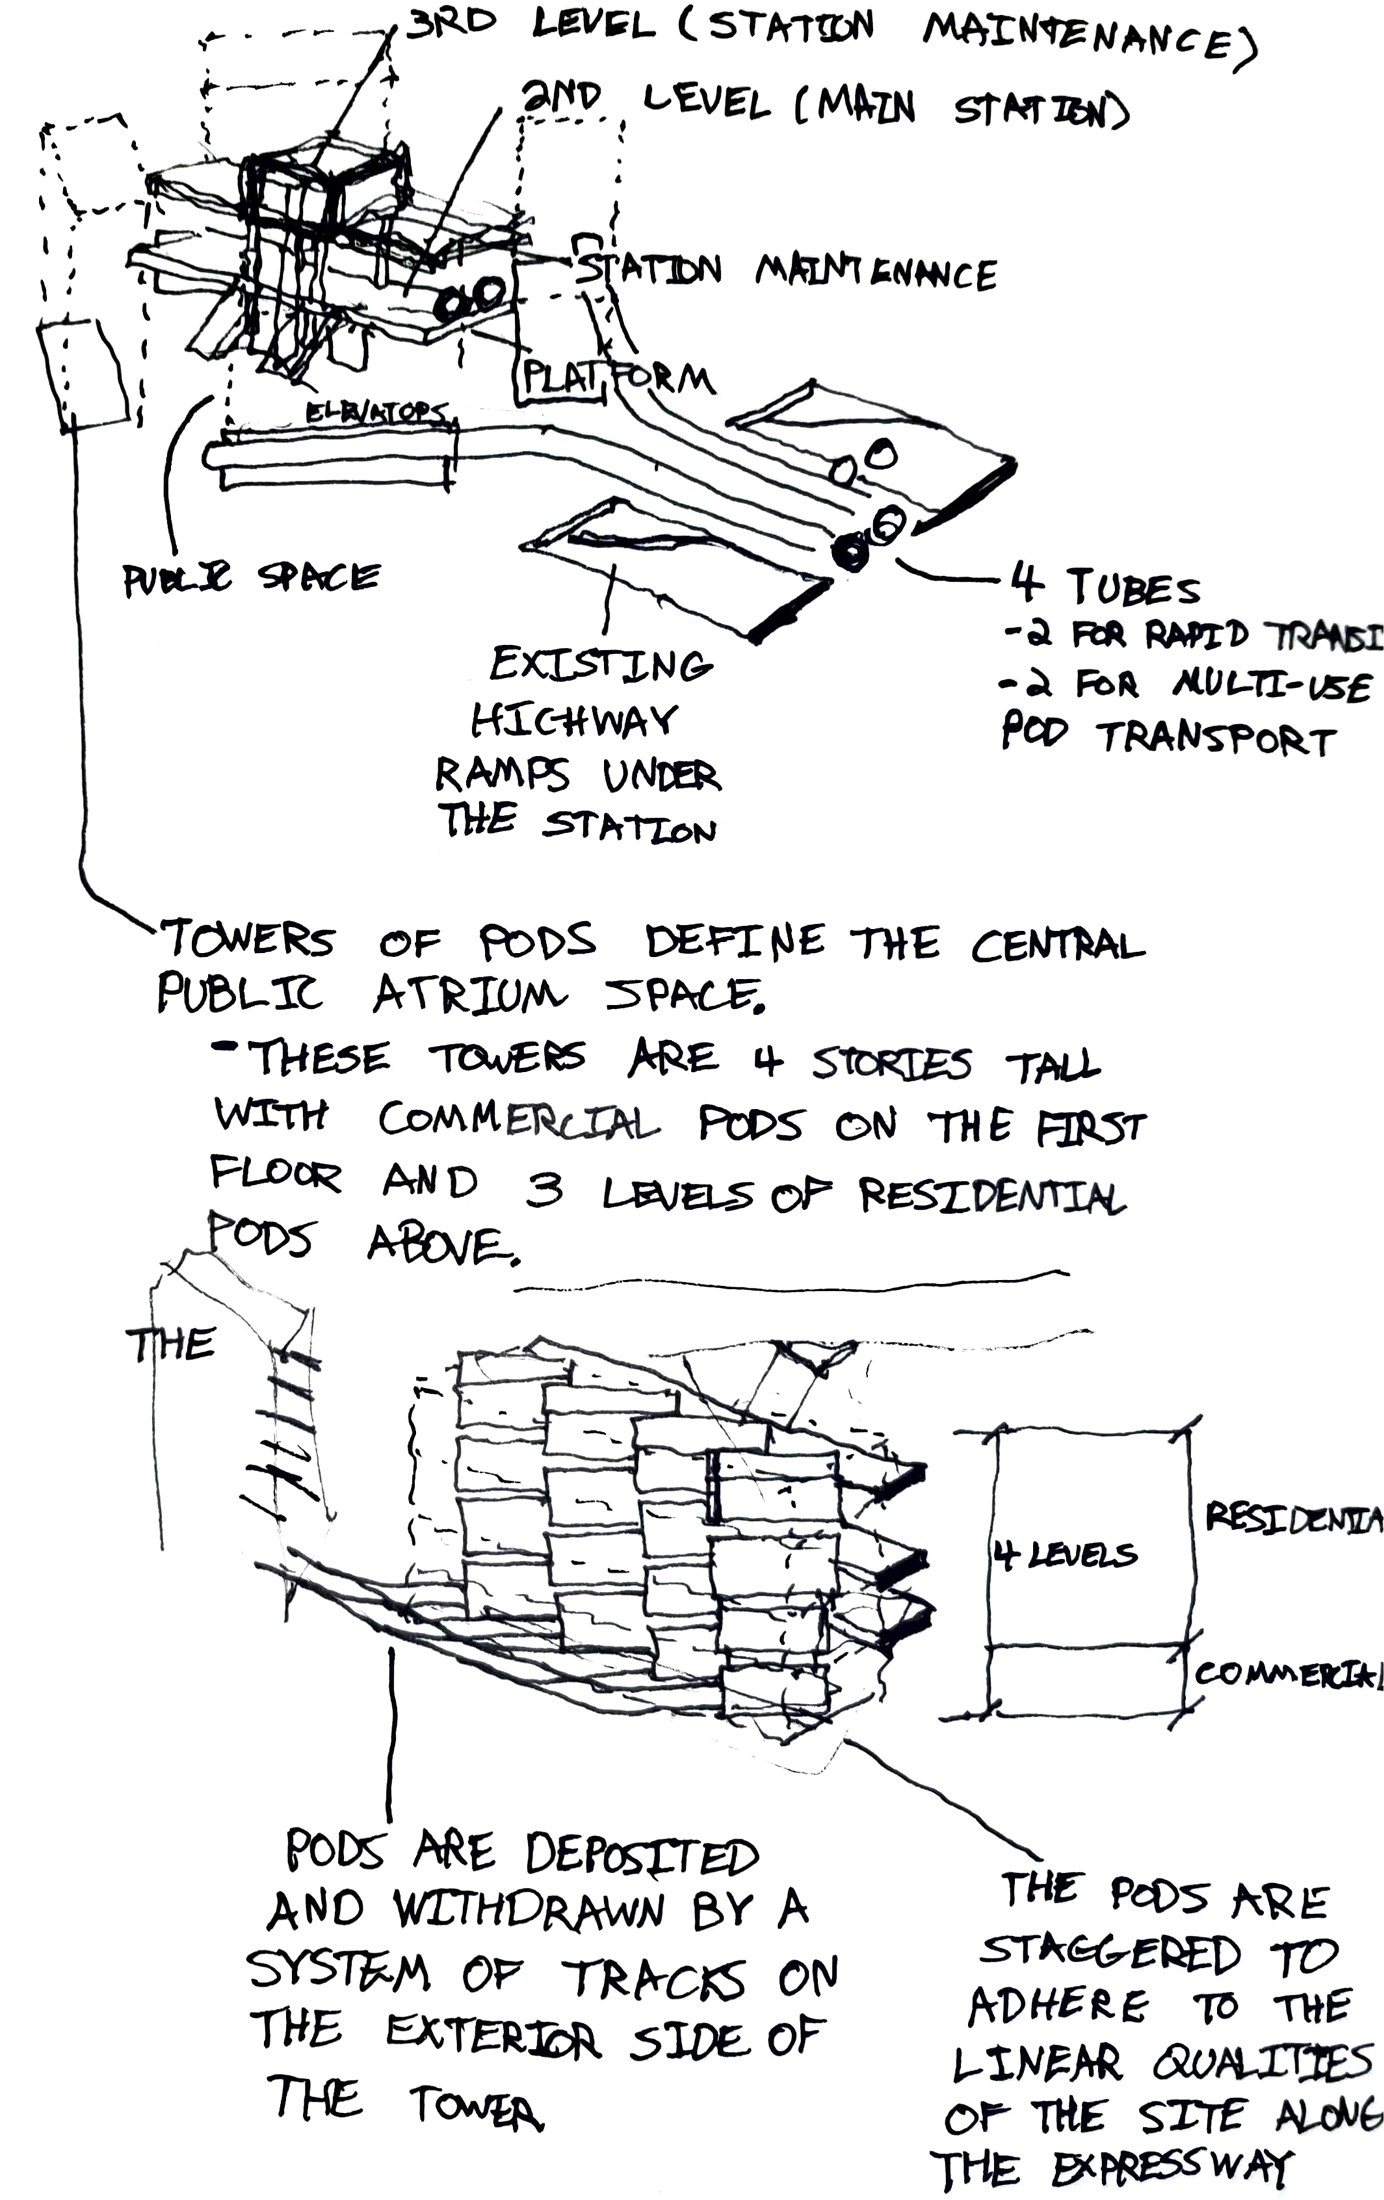 3RD LEVEL (STATION MAINTENANCE)
2ND LEVEL (MAIN STATION)
STATION MAINTENANCE
PLATFORM
ELEVATORS
PUBLIC SPACE
4 TUBES
-2 FOR RAPID TRANSI
-2 FOR MULTI-USE
POD TRANSPORT
EXISTING
HIGHWAY
RAMPS UNDER
THE STATION
TOWERS OF PODS DEFINE THE CENTRAL
PUBLIC ATRIUM SPACE.
-THESE TOWERS ARE 4 STORIES TALL
WITH COMMERCIAL PODS ON THE FIRST
FLOOR AND 3 LEVELS OF RESIDENTIAL
PODS ABOVE.
THE
4 LEVELS
RESIDENTIA
COMMERCIAL
PODS ARE DEPOSITED
AND WITHDRAWN BY A
SYSTEM OF TRACKS ON
THE EXTERIOR SIDE OF
THE TOWER
THE PODS ARE
STAGGERED TO
ADHERE TO THE
LINEAR QUALITIES
OF THE SITE ALONG
THE EXPRESSWAY